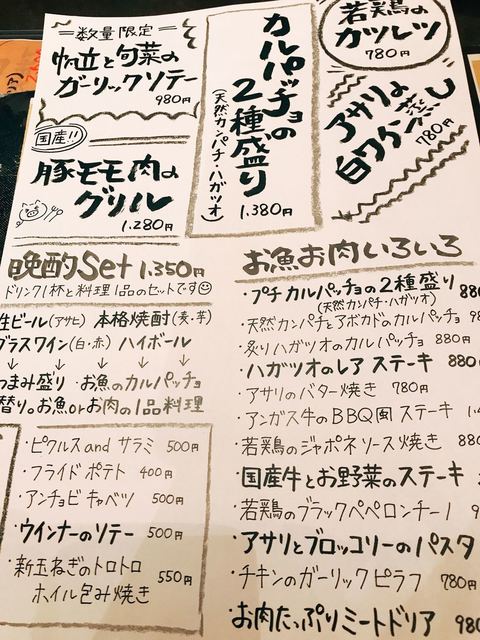 =数量限定=
帆立と旬菜の
ガーリックソテー
980円
カルパッチョの
2種盛り
(天然カンパチ・ハガツオ)
1.380円
若鶏の
カツレツ
780円
アサリの
白ワイン蒸し
780円
国産!!
豚モモ肉の
グリル
1.280円
晩酌Set 1.350円
ドリンク1杯と料理1品のセットです☺
生ビール(アサヒ) 本格焼酎(麦・芋)
グラスワイン(白・赤) ハイボール
↓ ↓ ↓ ↓
つまみ盛り お魚のカルパッチョ
替りのお魚orお肉の1品料理
・ピクルスand サラミ 500円
・フライドポテト 400円
・アンチョビキャベツ 500円
・ウインナーのソテー 500円
・新玉ねぎのトロトロ
ホイル包み焼き 550円
お魚お肉いろいろ
・プチカルパッチョの2種盛り 880
(天然カンパチ・ハガツオ)
・天然カンパチとアボカドのカルパッチョ 98
・炙りハガツオのカルパッチョ 880円
・ハガツオのレアステーキ 880
・アサリのバター焼き 780円
・アンガス牛のBBQ風ステーキ 1.
・若鶏のジャポネソース焼き 880
・国産牛とお野菜のステーキ
・若鶏のブラックペペロンチーノ 9
・アサリとブロッコリーのパスタ
・チキンのガーリックピラフ 780円
・お肉たっぷりミートドリア 980